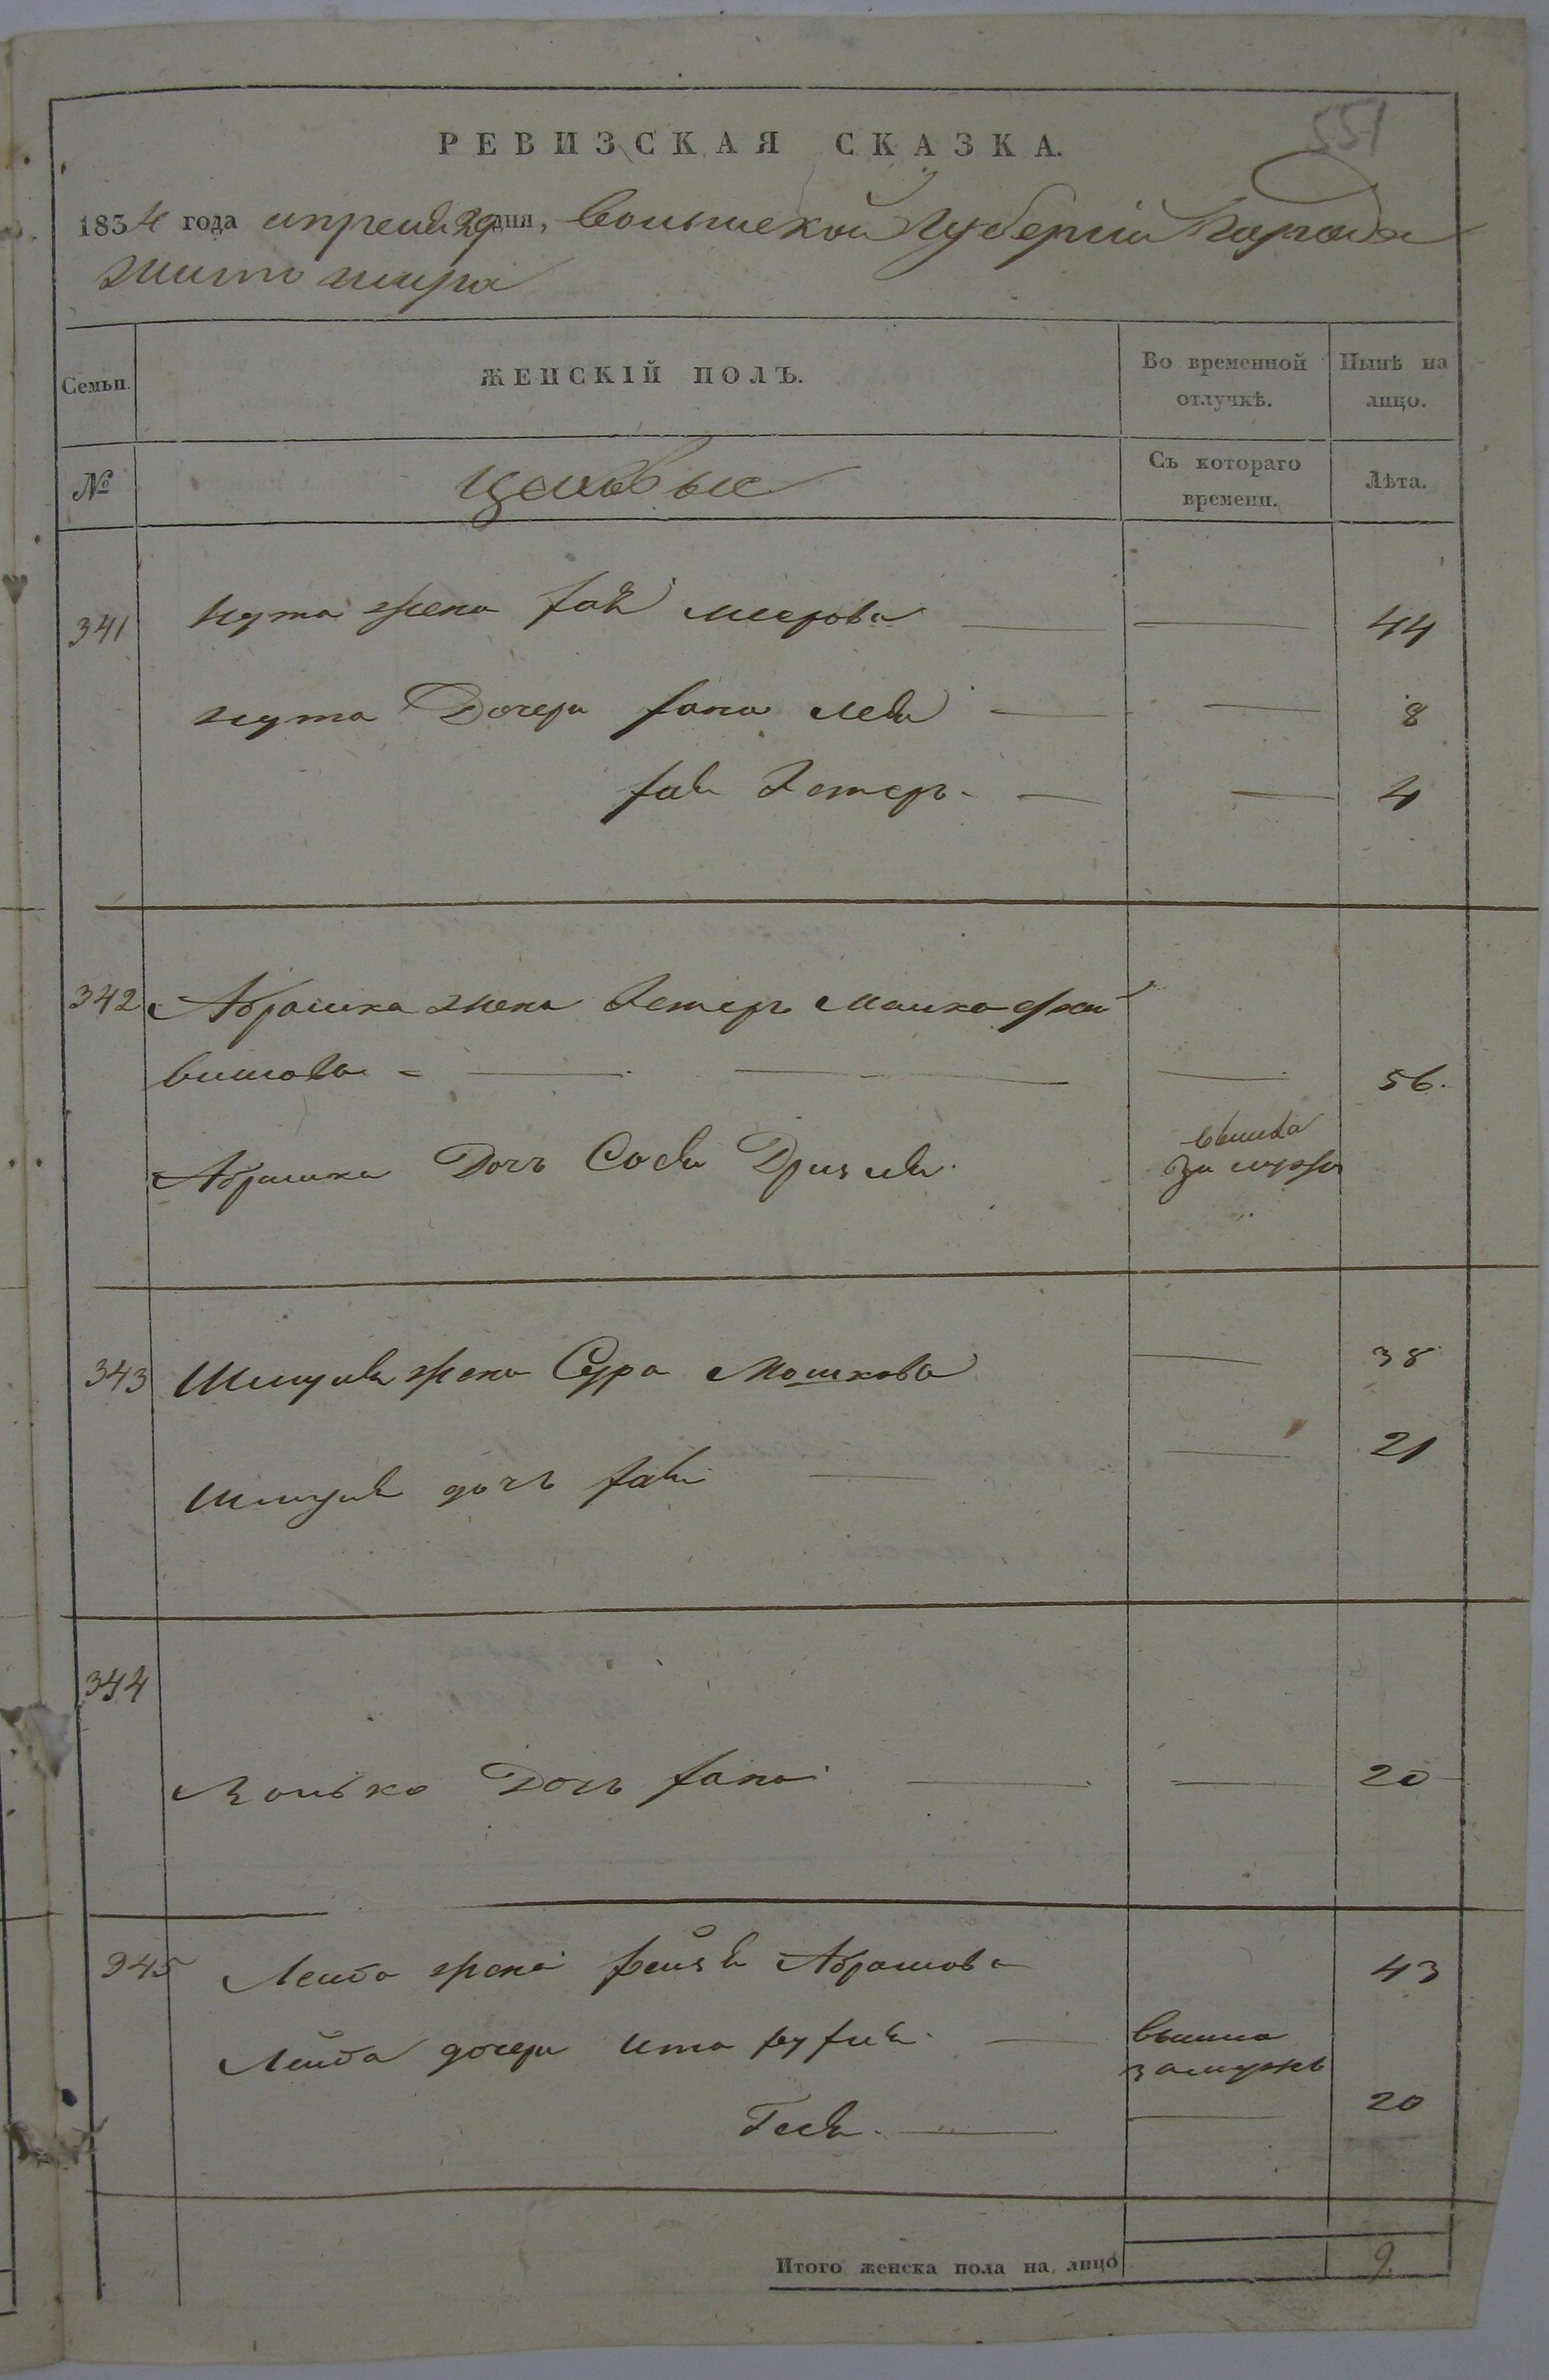 551
РЕВИЗСКАЯ СКАЗКА.
1834 года апреля 29 дня, Волынской Губернии Города
Житомира
Семьи. ЖЕНСКІЙ ПОЛЪ. Во временной отлучкѣ. Нынѣ на лицо.
№ Цеховые Съ котораго времени. Лѣта.
341 жена Мерова — — 44
Дочери Хана Лея — — 8
Хая Эстеръ — — 4
342 Абрашка жена Эстеръ
— — — 56.
Абрашка Дочь Дризля вышла за мужъ
343 Шмуля жена Сура Мошкова — 38
Шмуля дочь Хая — — 21
344
Дочь Хана — — 20
345 Лейба жена Фейга Абрамова 43
Лейба дочери Ита — вышла замужъ
Геся — — 20
Итого женска пола на лицо 9.